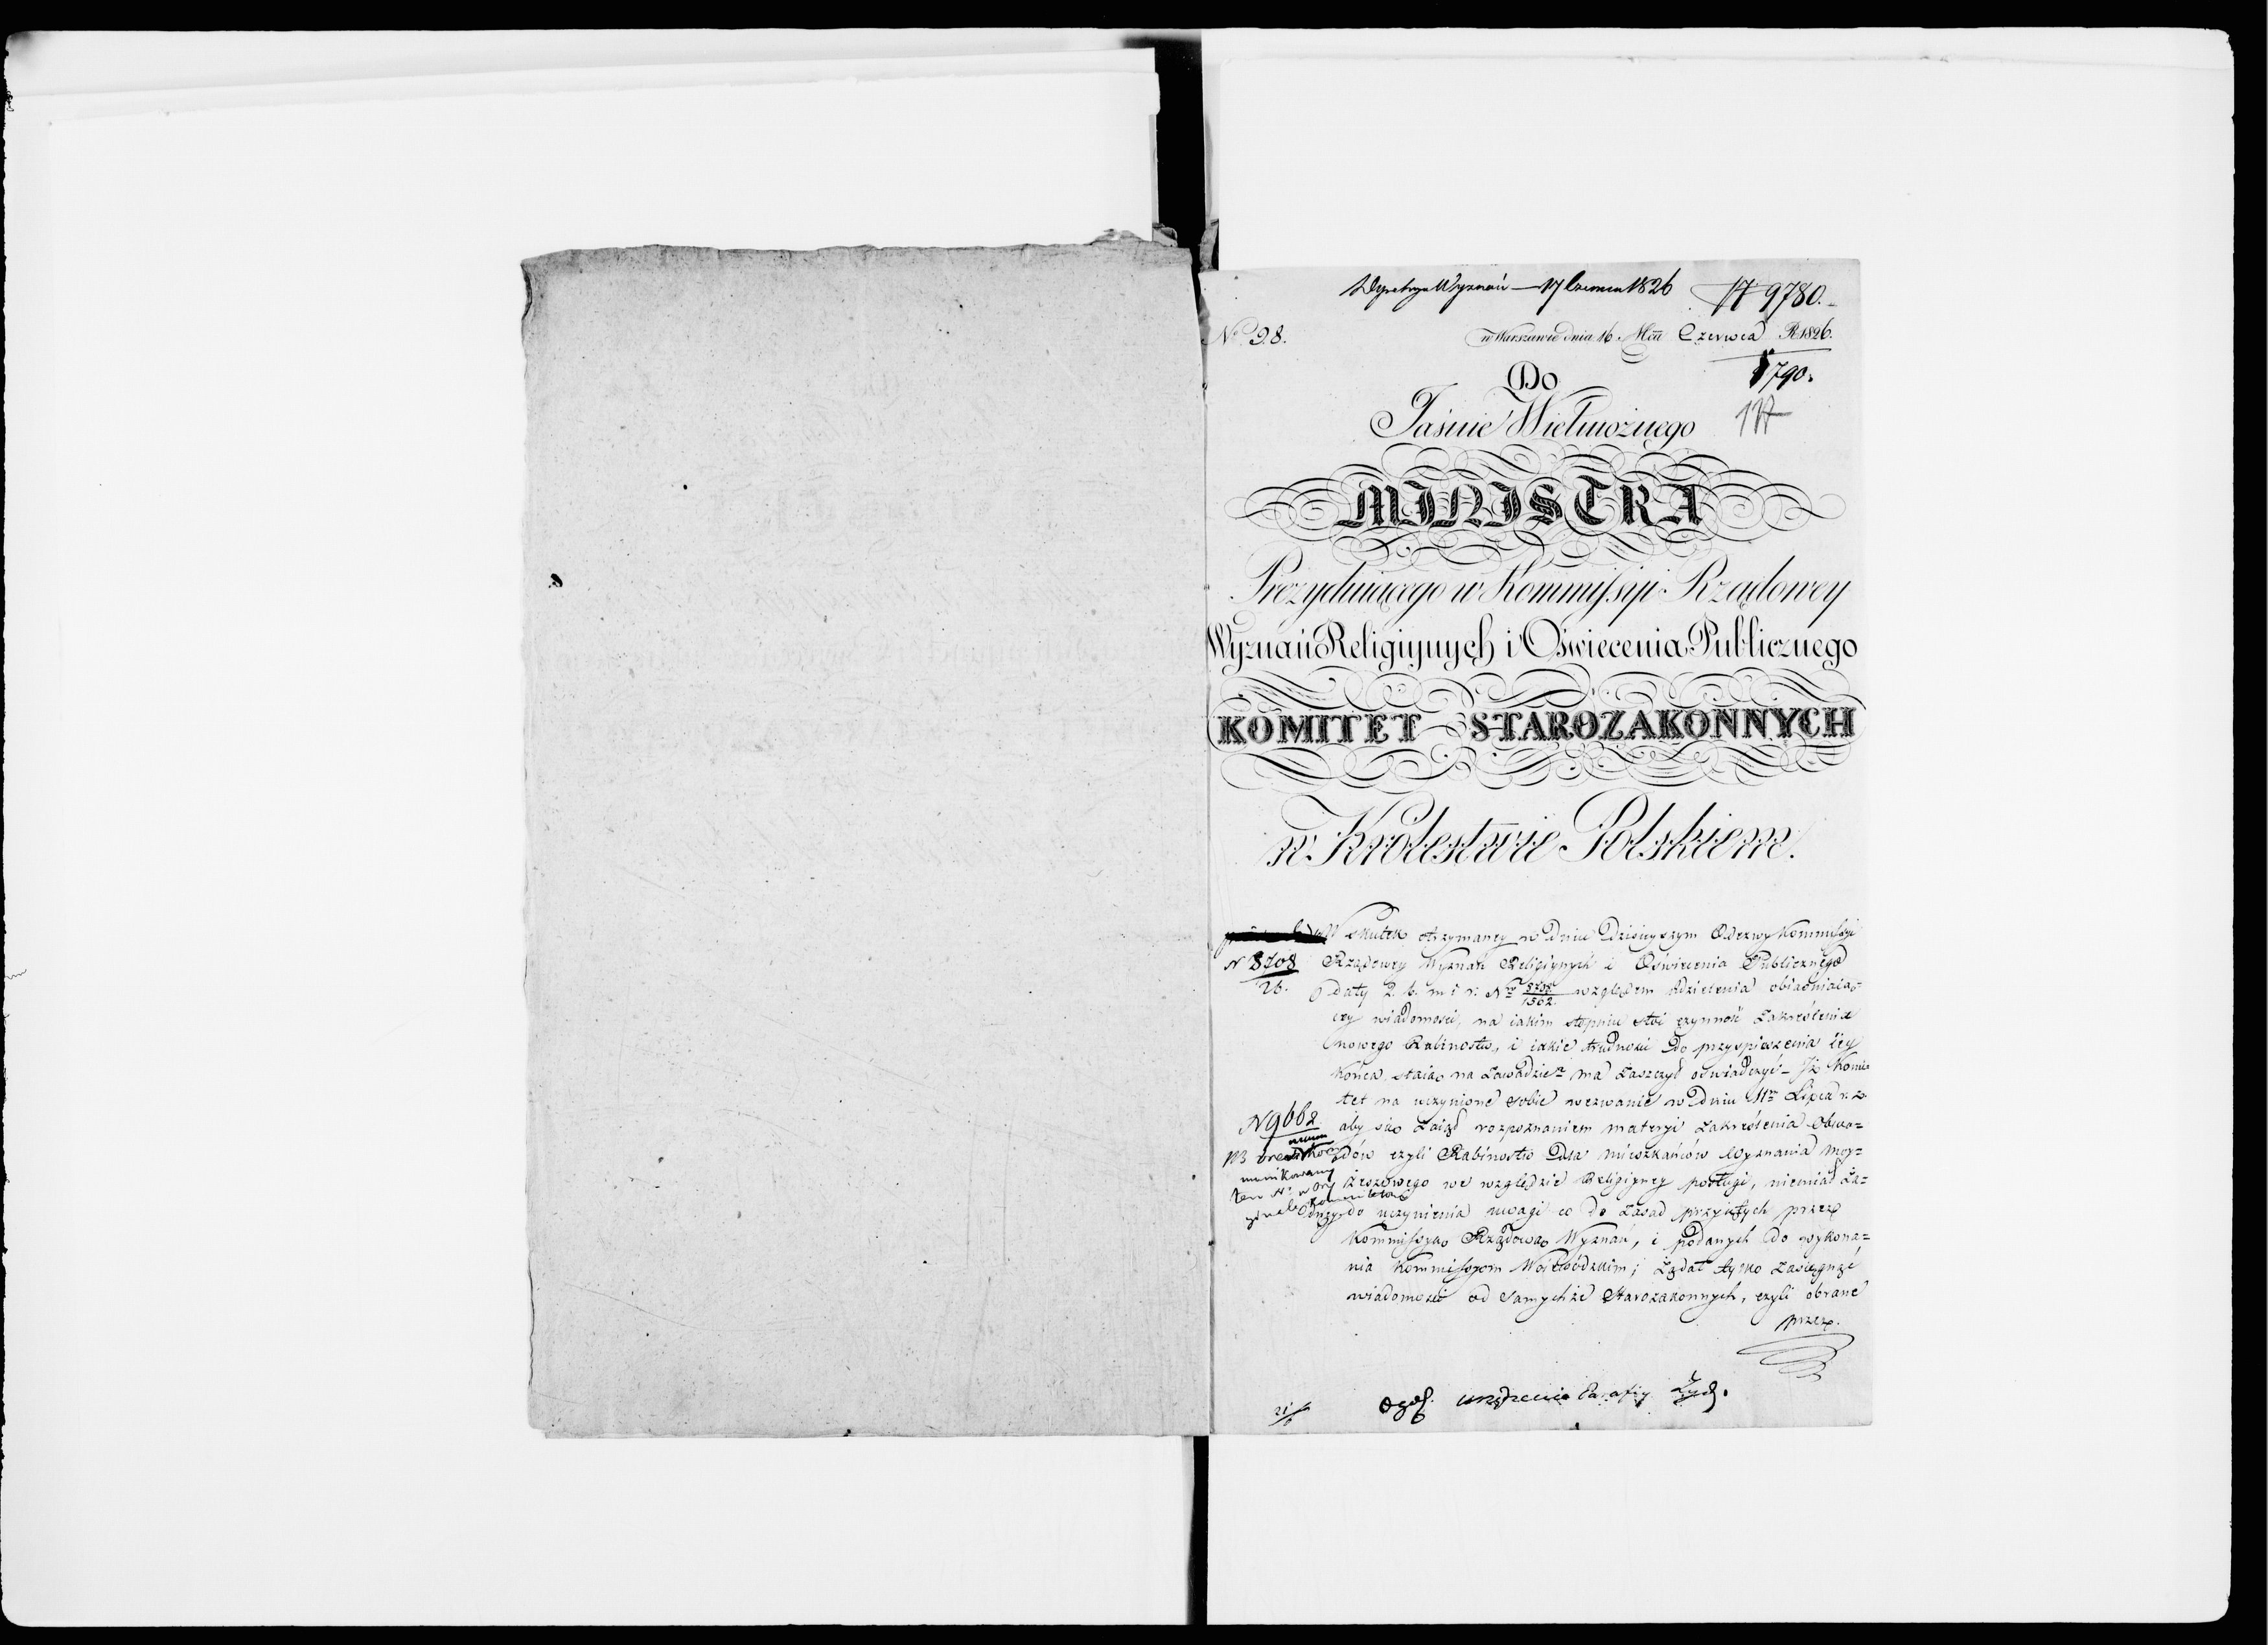 17 Czerwca 1826 9780.
No 98. w Warszawie dnia 16 Mca Czerwca R. 1826.
Do 790.
Jaśnie Wielmożnego
MINISTRA
Prezyduiącego w Kommissyi Rządowey
Wyznań Religiynych i Oświecenia Publicznego
KOMITET STAROZAKONNYCH
w Królestwie Polskiem.
W skutek otrzymaney w dniu dzisieyszym Odezwy Kommissyi
N 8708 Rządowey Wyznań Religiynych i Oświecenia Publicznego
26. z daty 2. b. m i r: Nro 8708/1562. względem udzielenia obiaśniaią-
cey wiadomości, na iakim stopniu stoi czynność zakreślenia
nowego Rabinostw, i iakie trudności do przyspieszenia iey
końca staią na zawadzie ma zaszczyt oświadczyć - Iż Komi-
tet na uczynione sobie wezwanie w dniu 11m Lipca r. z.
N 9662 aby się zaiął rozpoznaniem materyi zakreślenia Obwo-
dów czyli Rabinostw dla mieszkańców Wyznania Moy-
żeszowego we względzie Religiyney posługi, niemiał ża-
dnego do uczynienia uwagi co do zasad przyiętych przez
Kommissyią Rządową Wyznań, i podanych do wykona-
nia Kommissyom Woiewódzkim; żądał tylko zasięgnąć
wiadomość od samychże Starozakonnych, czyli obrane
przez
21/6 urządzenia Parafiy Żyd.